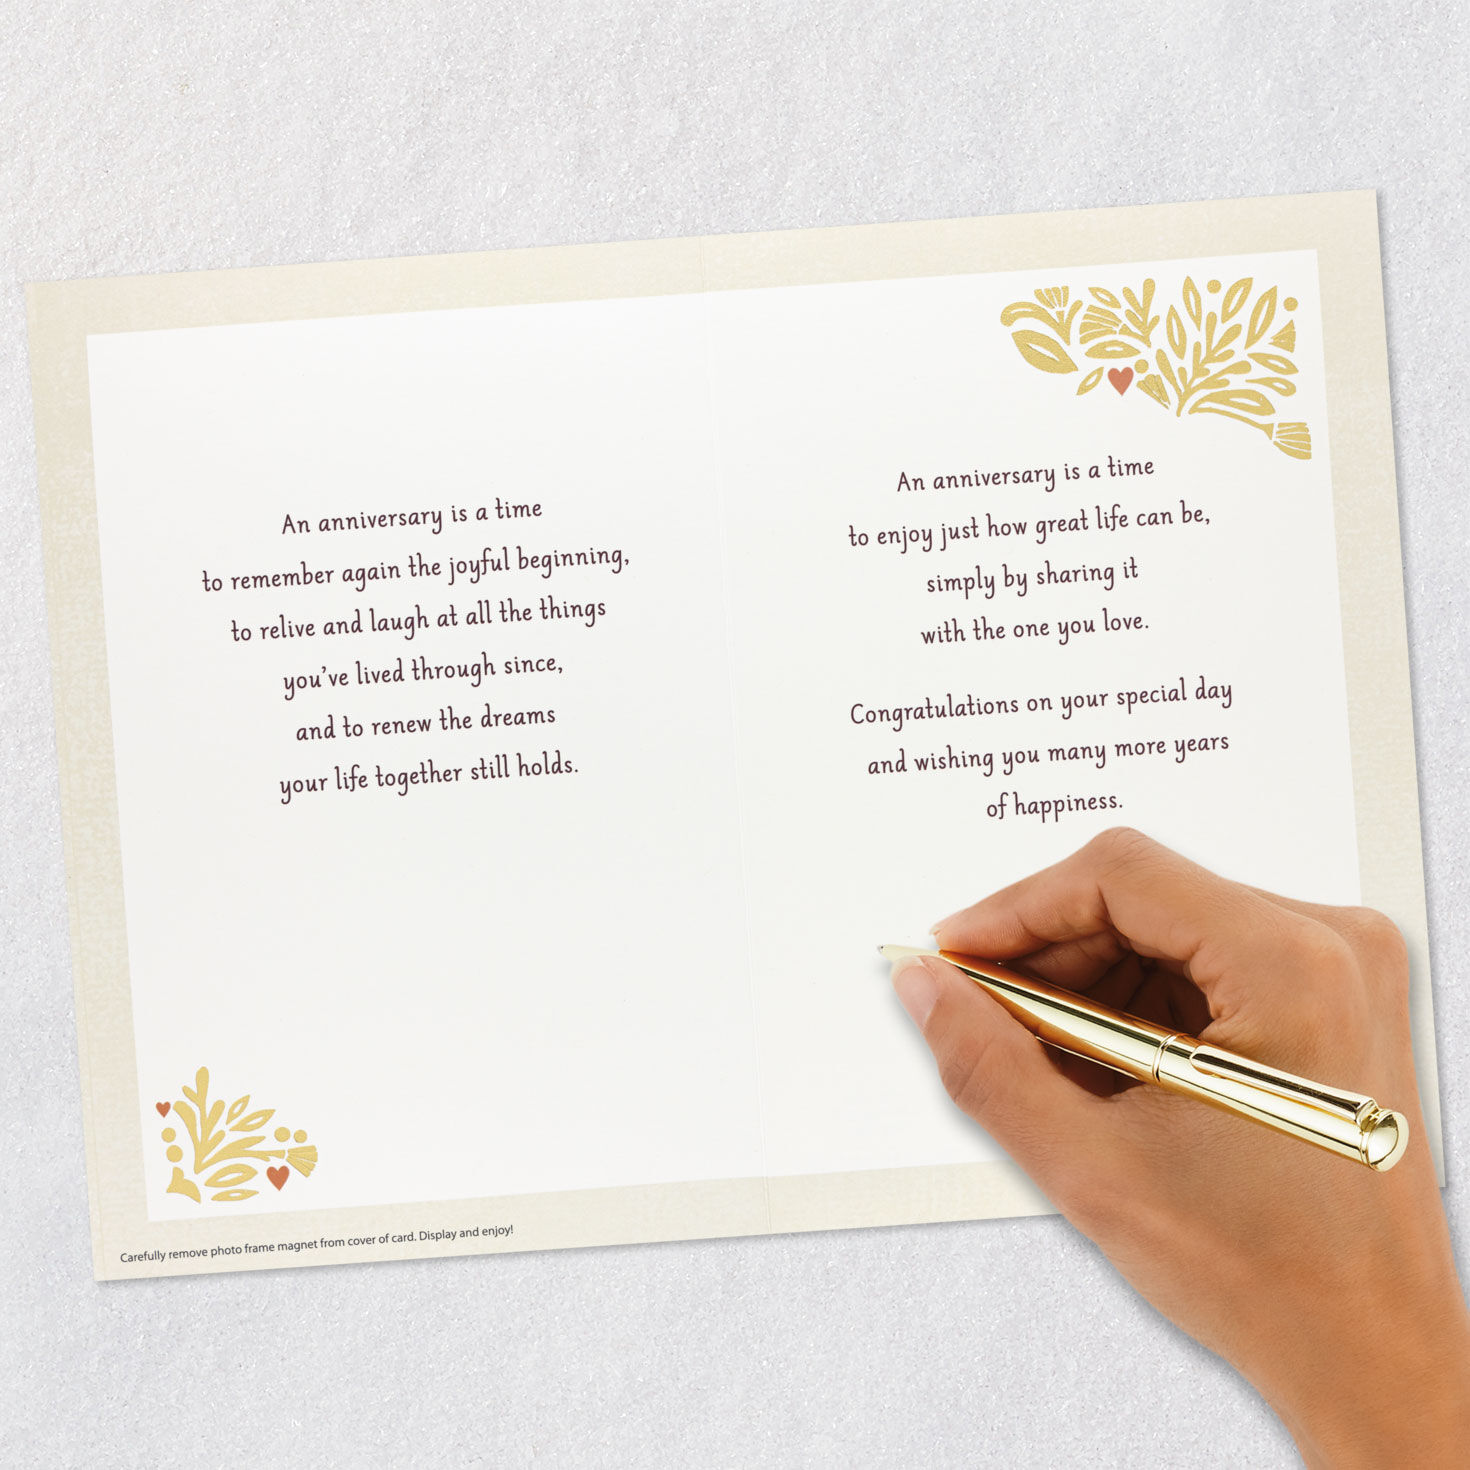 An anniversary is a time
to remember again the joyful beginning,
to relive and laugh at all the things
you've lived through since,
and to renew the dreams
your life together still holds.
Carefully remove photo frame magnet from cover of card. Display and enjoy!
An anniversary is a time
to enjoy just how great life can be,
simply by sharing it
with the one you love.
Congratulations on your special day
and wishing you many more years
of happiness.